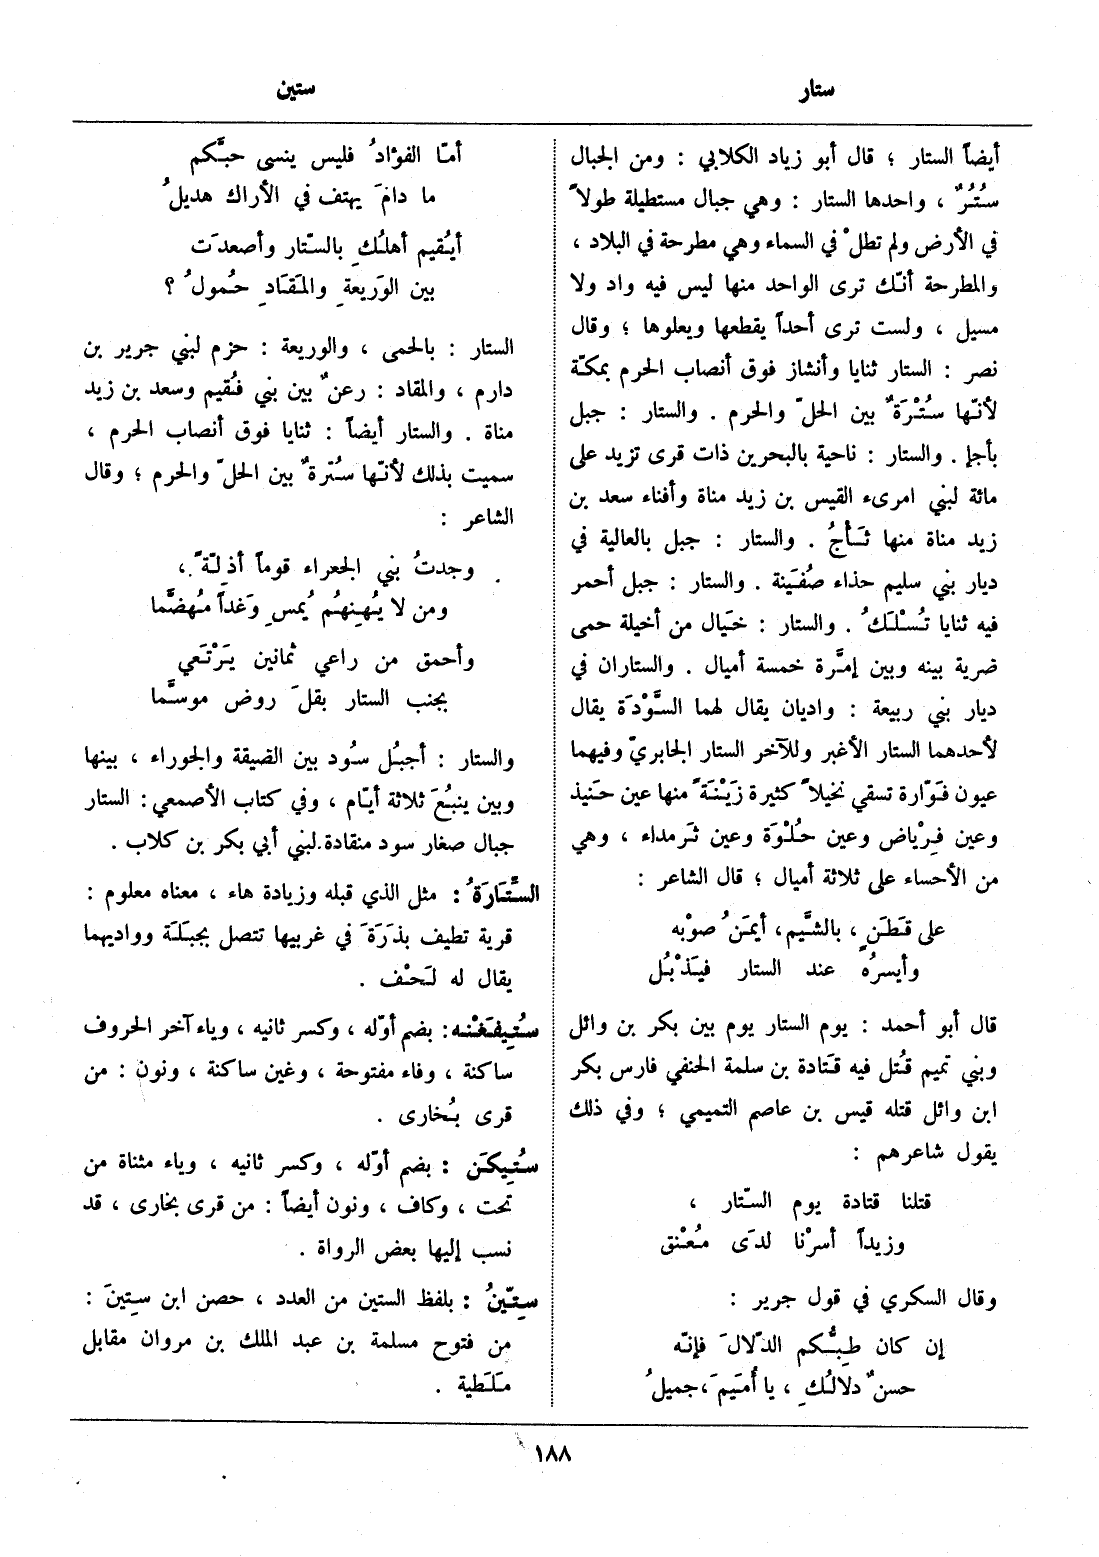 ستار
ستين
أيضاً الستار ؛ قال أبو زياد الكلابي : ومن الجبال
سُتُرٌ ، واحدها الستار : وهي جبال مستطيلة طولاً
في الأرض ولم تطلْ في السماء وهي مطرحة في البلاد ،
والمطرحة أنّك ترى الواحد منها ليس فيه واد ولا
مسيل ، ولست ترى أحداً يقطعها ويعلوها ؛ وقال
نصر : الستار ثنايا وأنشاز فوق أنصاب الحرم بمكّة
لأنّها سُتْرَةٌ بين الحلّ والحرم . والستار : جبل
بأجإ . والستار : ناحية بالبحرين ذات قرى تزيد على
مائة لبني امرىء القيس بن زيد مناة وأفناء سعد بن
زيد مناة منها ثَأْجُ . والستار : جبل بالعالية في
ديار بني سليم حذاء صُفَينة . والستار : جبل أحمر
فيه ثنايا تُسْلَكُ . والستار : خَيال من أخيلة حمى
ضرية بينه وبين إمَّرة خمسة أميال . والستاران في
ديار بني ربيعة : واديان يقال لهما السَّوْدَة يقال
لأحدهما الستار الأغبر وللآخر الستار الجابريّ وفيهما
عيون فَوّارة تسقي نخيلاً كثيرة زَيْنَةً منها عين حَنيذ
وعين فِرْياض وعين حُلْوَة وعين ثَرمداء ، وهي
من الأحساء على ثلاثة أميال ؛ قال الشاعر :
على قَطَنٍ ، بالشَّيم ، أيمَنُ صوْبه
وأيسرُه عند الستار فيَذْبُل
قال أبو أحمد : يوم الستار يوم بين بكر بن وائل
وبني تميم قُتل فيه قَتادة بن سلمة الحنفي فارس بكر
ابن وائل قتله قيس بن عاصم التميمي ؛ وفي ذلك
يقول شاعرهم :
قتلنا قتادة يوم السّتار ،
وزيداً أسرْنا لدَى مُعْنق
وقال السكري في قول جرير :
إن كان طِبُّكم الدّلالَ فإنّه
حسنٌ دلالُكِ ، يا أُمَيمَ ، جميلُ
أمّا الفؤادُ فليس ينسى حبَّكم
ما دامَ يهتف في الأراك هديلُ
أيُقيم أهلُكِ بالسّتار وأصعدَت
بين الوَريعةِ والمَقادِ حُمولُ ؟
الستار : بالحمى ، والوريعة : حزم لبني جرير بن
دارم ، والمقاد : رعنٌ بين بني فُقيم وسعد بن زيد
مناة . والستار أيضاً : ثنايا فوق أنصاب الحرم ،
سميت بذلك لأنّها سُترةٌ بين الحلّ والحرم ؛ وقال
الشاعر :
وجدتُ بني الجعراء قوماً أذلّةً ،
ومن لا يُهِنهُم يُمسِ وَغداً مُهضَّما
وأحمق من راعي ثمانين يَرْتَعي
بجنب الستار بقلَ روض موسَّما
والستار : أجبُل سُود بين الضيقة والجوراء ، بينها
وبين ينبُعَ ثلاثة أيّام ، وفي كتاب الأصمعي : الستار
جبال صغار سود منقادة لبني أبي بكر بن كلاب .
السَّتَارَةُ : مثل الذي قبله وزيادة هاء ، معناه معلوم :
قرية تطيف بذَرَةَ في غربيها تتصل بجبَلَة وواديهما
يقال له لَحْف .
سُتِيفَغْنه : بضم أوّله ، وكسر ثانيه ، وياء آخر الحروف
ساكنة ، وفاء مفتوحة ، وغين ساكنة ، ونون : من
قرى بُخارى .
سُتِيكَن : بضم أوّله ، وكسر ثانيه ، وياء مثناة من
تحت ، وكاف ، ونون أيضاً : من قرى بخارى ، قد
نسب إليها بعض الرواة .
سِتّينُ : بلفظ الستين من العدد ، حصن ابن سِتينَ :
من فتوح مسلمة بن عبد الملك بن مروان مقابل
مَلَطية .
١٨٨